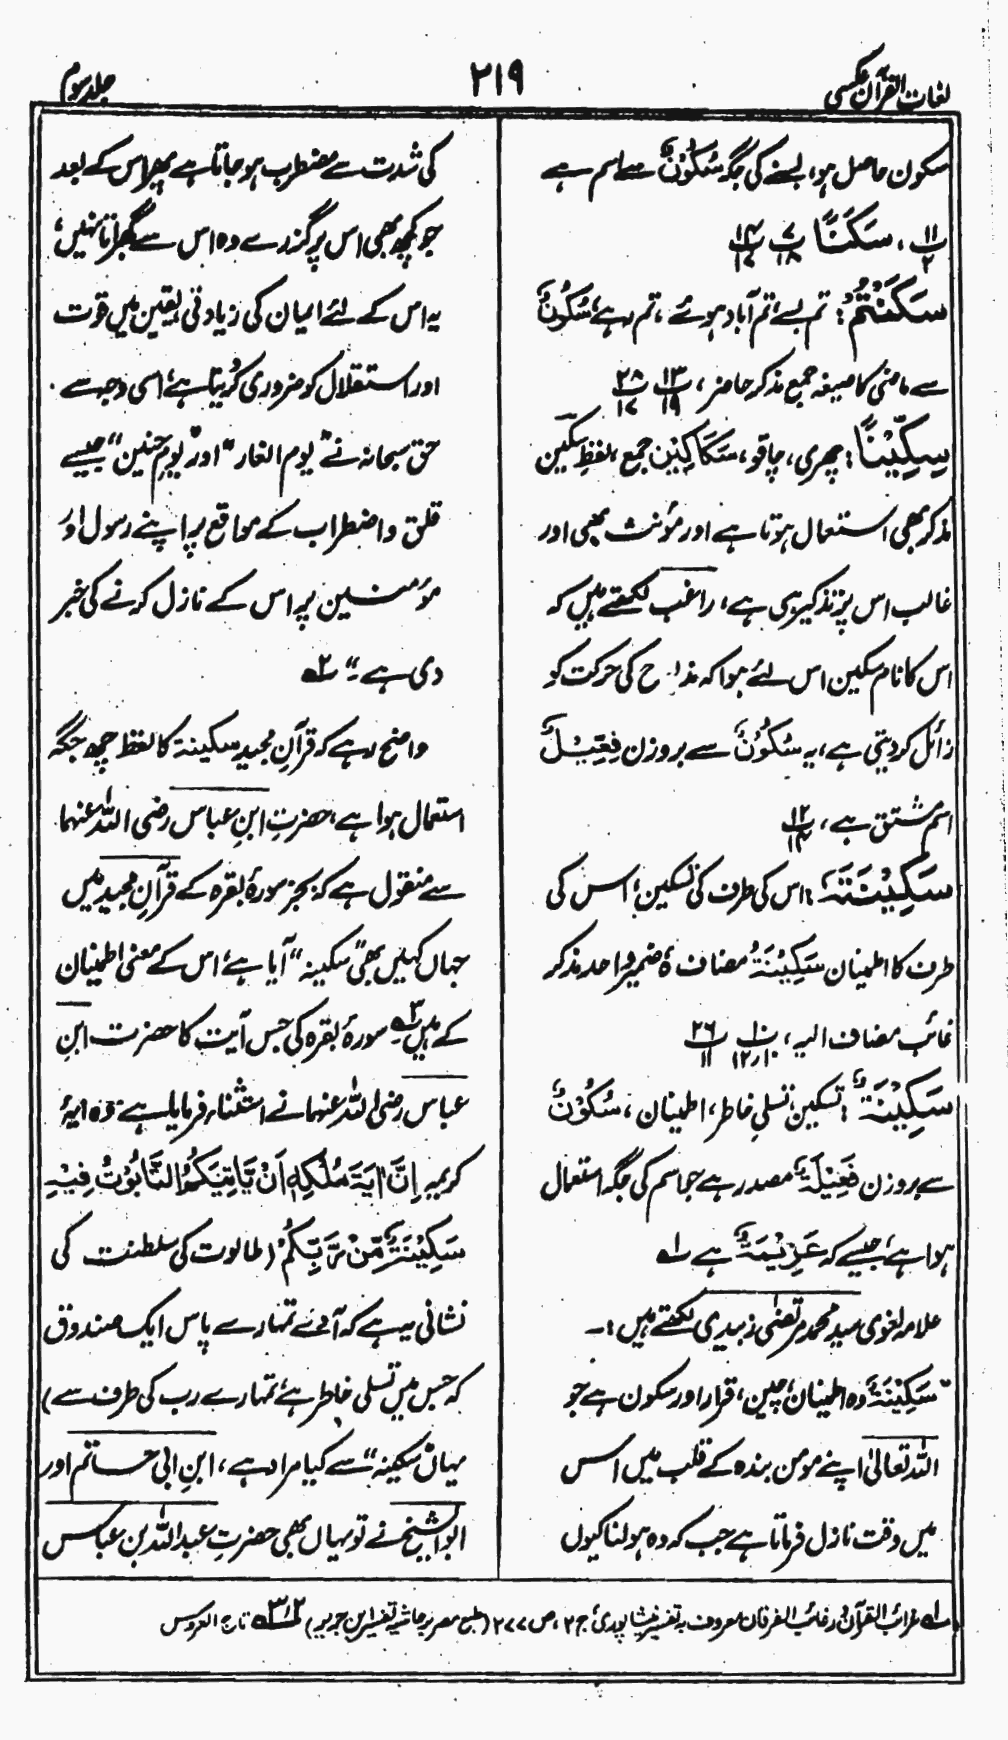 لغات القرآن عکسی
۲۱۹
جلد سوم
سکون حاصل ہو، بسنے کی جگہ سُکُوْنٌ سے اسم ہے
۱۱/۲، سَکَنًا ۷/۱۸ ۱۴/۱۷
سَکَنْتُمْ: تم بسے، تم آباد ہوئے، تم رہے، سُکُوْنٌ
سے ماضی کا صیغہ جمع مذکر حاضر، ۱۳/۱۹ ۲۸/۱۷
سِکِّیْنًا: چھری، چاقو، سَکَاکِیْن جمع، لفظ سکین
مذکر بھی استعمال ہوتا ہے اور مؤنث بھی اور
غالب اس پر تذکیر ہی ہے، راغب لکھتے ہیں کہ
اس کا نام سکین اس لئے ہوا کہ مذبوح کی حرکت کو
زائل کر دیتی ہے، یہ سُکُوْنٌ سے بروزن فِعِّیْلٌ
اسم مشتق ہے، ۱۲/۱۴
سَکِیْنَتَہٗ: اس کی طرف کی تسکین، اس کی
طرف کا اطمینان سَکِیْنَۃُ مضاف ہٗ ضمیر واحد مذکر
غائب مضاف الیہ، ۱۰/۱۰،۱۲ ۲۶/۱۱
سَکِیْنَۃٌ: تسکین، تسلیِ خاطر، اطمینان، سُکُوْنٌ
سے بروزن فَعِیْلَۃٌ مصدر ہے جو اسم کی جگہ استعمال
ہوا ہے، جیسے کہ عَزِیْمَۃٌ ہے ۱ھ
علامہ لغوی سید محمد مرتضیٰ زبیدی لکھتے ہیں:۔
"سَکِیْنَۃٌ وہ اطمینان، چین، قرار اور سکون ہے جو
اللہ تعالیٰ اپنے مومن بندہ کے قلب میں اس
میں وقت نازل فرماتا ہے جب کہ وہ ہولناکیوں
کی شدت سے مضطرب ہو جاتا ہے پھر اس کے بعد
جو کچھ بھی اس پر گزرے وہ اس سے گھبراتا نہیں،
یہ اس کے لئے ایمان کی زیادتی، یقین میں قوت
اور استقلال کو ضروری کر دیتا ہے، اسی وجہ سے
حق سبحانہ نے "یوم الغار" اور "یوم حنین" جیسے
قلق و اضطراب کے مواقع پر اپنے رسول اور
مؤمنین پر اس کے نازل کرنے کی خبر
دی ہے۔" ۲ھ
واضح رہے کہ قرآنِ مجید سکینۃ کا لفظ چھ جگہ
استعمال ہوا ہے، حضرتِ ابنِ عباس رضی اللہ عنہما
سے منقول ہے کہ بجز سورۂ بقرہ کے قرآنِ مجید میں
جہاں کہیں بھی "سکینہ" آیا ہے، اس کے معنی اطمینان
کے ہیں ۳ھ۔ سورۂ بقرہ کی جس آیت کا حضرت ابنِ
عباس رضی اللہ عنہما نے استثناء فرمایا ہے وہ آیۂ
کریمہ اِنَّ اٰیَۃَ مُلْکِہٖ اَنْ یَّاْتِیَکُمُ التَّابُوْتُ فِیْہِ
سَکِیْنَۃٌ مِّنْ رَّبِّکُمْ (طالوت کی سلطنت کی
نشانی یہ ہے کہ آوے تمہارے پاس ایک صندوق
کہ جس میں تسلی خاطر ہے، تمہارے رب کی طرف سے)
یہاں "سکینہ" سے کیا مراد ہے، ابنِ ابی حاتم اور
ابو الشیخ نے تو یہاں بھی حضرتِ عبداللہ بن عباس
۱ھ غرائب القرآن و رغائب الفرقان معروف بہ تفسیر نیشاپوری، ج ۲، ص ۲۷۷ (طبع مصر بر حاشیہ تفسیر ابن جریر) ۲، ۳ھ تاج العروس